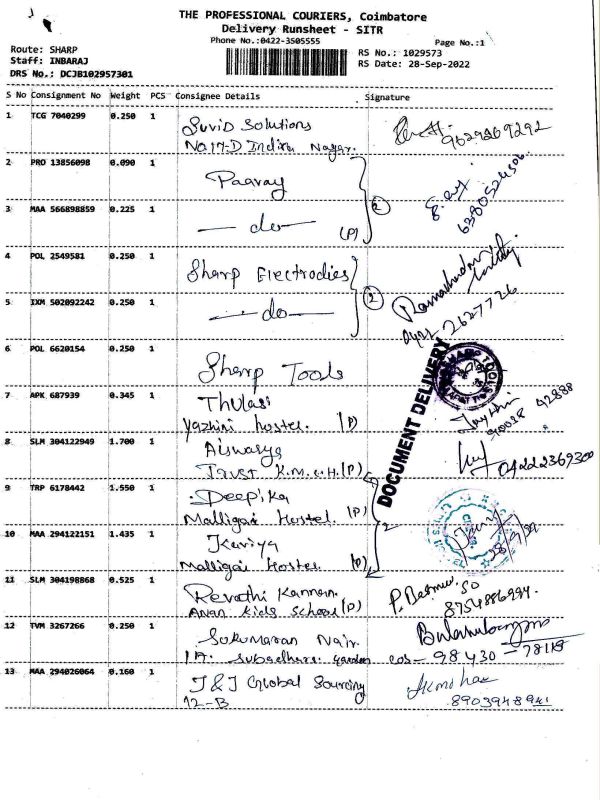 THE PROFESSIONAL COURIERS, Coimbatore
Delivery Runsheet - SITR
Phone No.:0422-3505555
Page No.:1
Route: SHARP
Staff: INBARAJ
DRS No.: DCJB102957301
RS No.: 1029573
RS Date: 28-Sep-2022
S No Consignment No Weight PCS Consignee Details Signature
1 TCG 7040299 0.250 1 Suvid Solutions
No.17-D Indira Nagar. 9629269292
2 PRO 13856098 0.090 1 Paavay
3 MAA 566898859 0.225 1 — do — (P) 2
4 POL 2549581 0.250 1 Sharp Electrodies
5 IXM 502092242 0.250 1 — do — 2 0422 2627726
6 POL 6620154 0.250 1 Sharp Tools
DOCUMENT DELIVERY
SHARP TOOLS
7 APK 687939 0.345 1 Thulasi
Yazhini hostel. (P)
8 SLM 304122949 1.700 1 Aiswarya
Trust K.M.C.H. (P) 04222369300
9 TRP 6178442 1.550 1 Deepika
Malligai Hostel. (P) 2
10 MAA 294122151 1.435 1 Kaviya
Malligai Hostel. (P)
11 SLM 304198868 0.525 1 Revathi Kannan
Anan Kids School (P) 8754886994
12 TVM 3267266 0.250 1 Sukumaran Nair
1A. Subadhara Garden 98430-78118
13 MAA 294026064 0.160 1 J&J Global Sourcing
12-B 8903948941